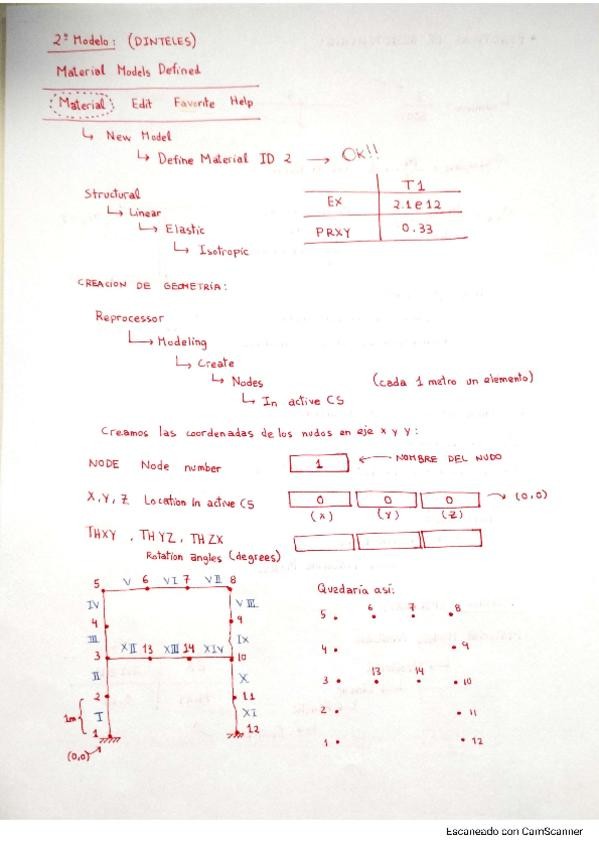 2º Modelo: (DINTELES)
Material Models Defined
Material Edit Favorite Help
↳ New Model
↳ Define Material ID 2 → Ok!!
Structural
↳ Linear
↳ Elastic
↳ Isotropic
T1
EX 2.1e12
PRXY 0.33
CREACION DE GEOMETRIA:
Reprocessor
↳ Modeling
↳ Create
↳ Nodes (cada 1 metro un elemento)
↳ In active CS
Creamos las coordenadas de los nudos en eje x y y:
NODE Node number 1 ← NOMBRE DEL NUDO
X, Y, Z Location in active CS 0 0 0 → (0,0)
(X) (Y) (Z)
THXY, THYZ, THZX
Rotation angles (degrees)
5 V 6 VI 7 VII 8
IV VIII
4 9
III IX
3 XII 13 XIII 14 XIV 10
II X
2 11
1m I XI
1 12
(0,0)
Quedaría así:
5 6 7 8
4 9
3 13 14 10
2 11
1 12
Escaneado con CamScanner